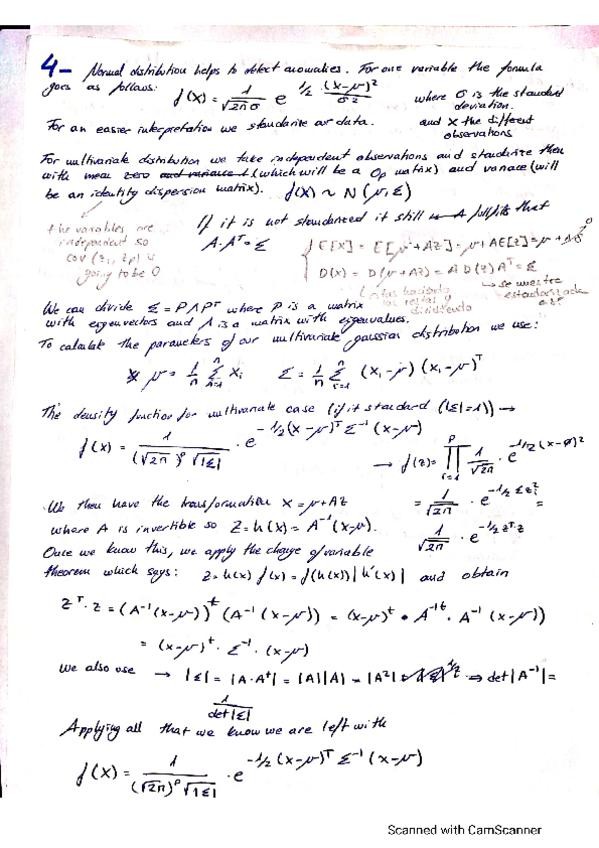 4- Normal distribution helps to detect anomalies. For one variable the formula
goes as follows: f(x) = 1/√2π σ e 1/2 · (x-μ)²/σ² where σ is the standard
deviation.
For an easier interpretation we standarize our data. and X the different
observations
For multivariate distribution we take independent observations and standarize them
with mean zero (which will be a Op matrix) and (will
be an identity dispersion matrix). f(x) ~ N(μ, Σ)
the variables are
independent so
cov (z₁, zp) is
going to be 0
If it is not standarized it still that
A·Aᵀ = Σ
E[X] = E[μ + AZ] = μ + AE[Z] = μ + A·0
D(x) = D(μ + AZ) = A D(Z) Aᵀ = Σ
se muestre
estandarizada
We can divide Σ = PΛPᵀ where P is a matrix
with eigenvectors and Λ is a matrix with eigenvalues.
To calculate the parameters of our multivariate gaussian distribution we use:
μ = 1/n Σ xi Σ = 1/n Σ (xi - μ)(xi - μ)ᵀ
The density function for multivariate case (if it standard (|Σ|=1)) →
f(x) = 1/(√2π)ᵖ √|Σ| · e -1/2(x-μ)ᵀ Σ⁻¹ (x-μ)
→ f(z) = ∏ 1/√2π · e -1/2(x-0)²
= 1/√2π · e -1/2 Σzi² =
1/√2π · e -1/2 zᵀ·z
We then have the transformation X = μ + AZ
where A is invertible so Z = h(x) = A⁻¹(x-μ).
Once we know this, we apply the change of variable
theorem which says: Z = h(x) f(x) = f(h(x)) |h'(x)| and obtain
Zᵀ·Z = (A⁻¹(x-μ))ᵗ (A⁻¹(x-μ)) = (x-μ)ᵗ · A⁻¹ᵗ · A⁻¹ (x-μ))
= (x-μ)ᵗ · Σ⁻¹ · (x-μ)
We also use → |Σ| = |A·Aᵗ| = |A||A| = |A²| ⇒ det|A⁻¹| =
1/det|Σ|
Applying all that we know we are left with
f(x) = 1/(√2π)ᵖ √|Σ| · e -1/2 (x-μ)ᵀ Σ⁻¹ (x-μ)
Scanned with CamScanner